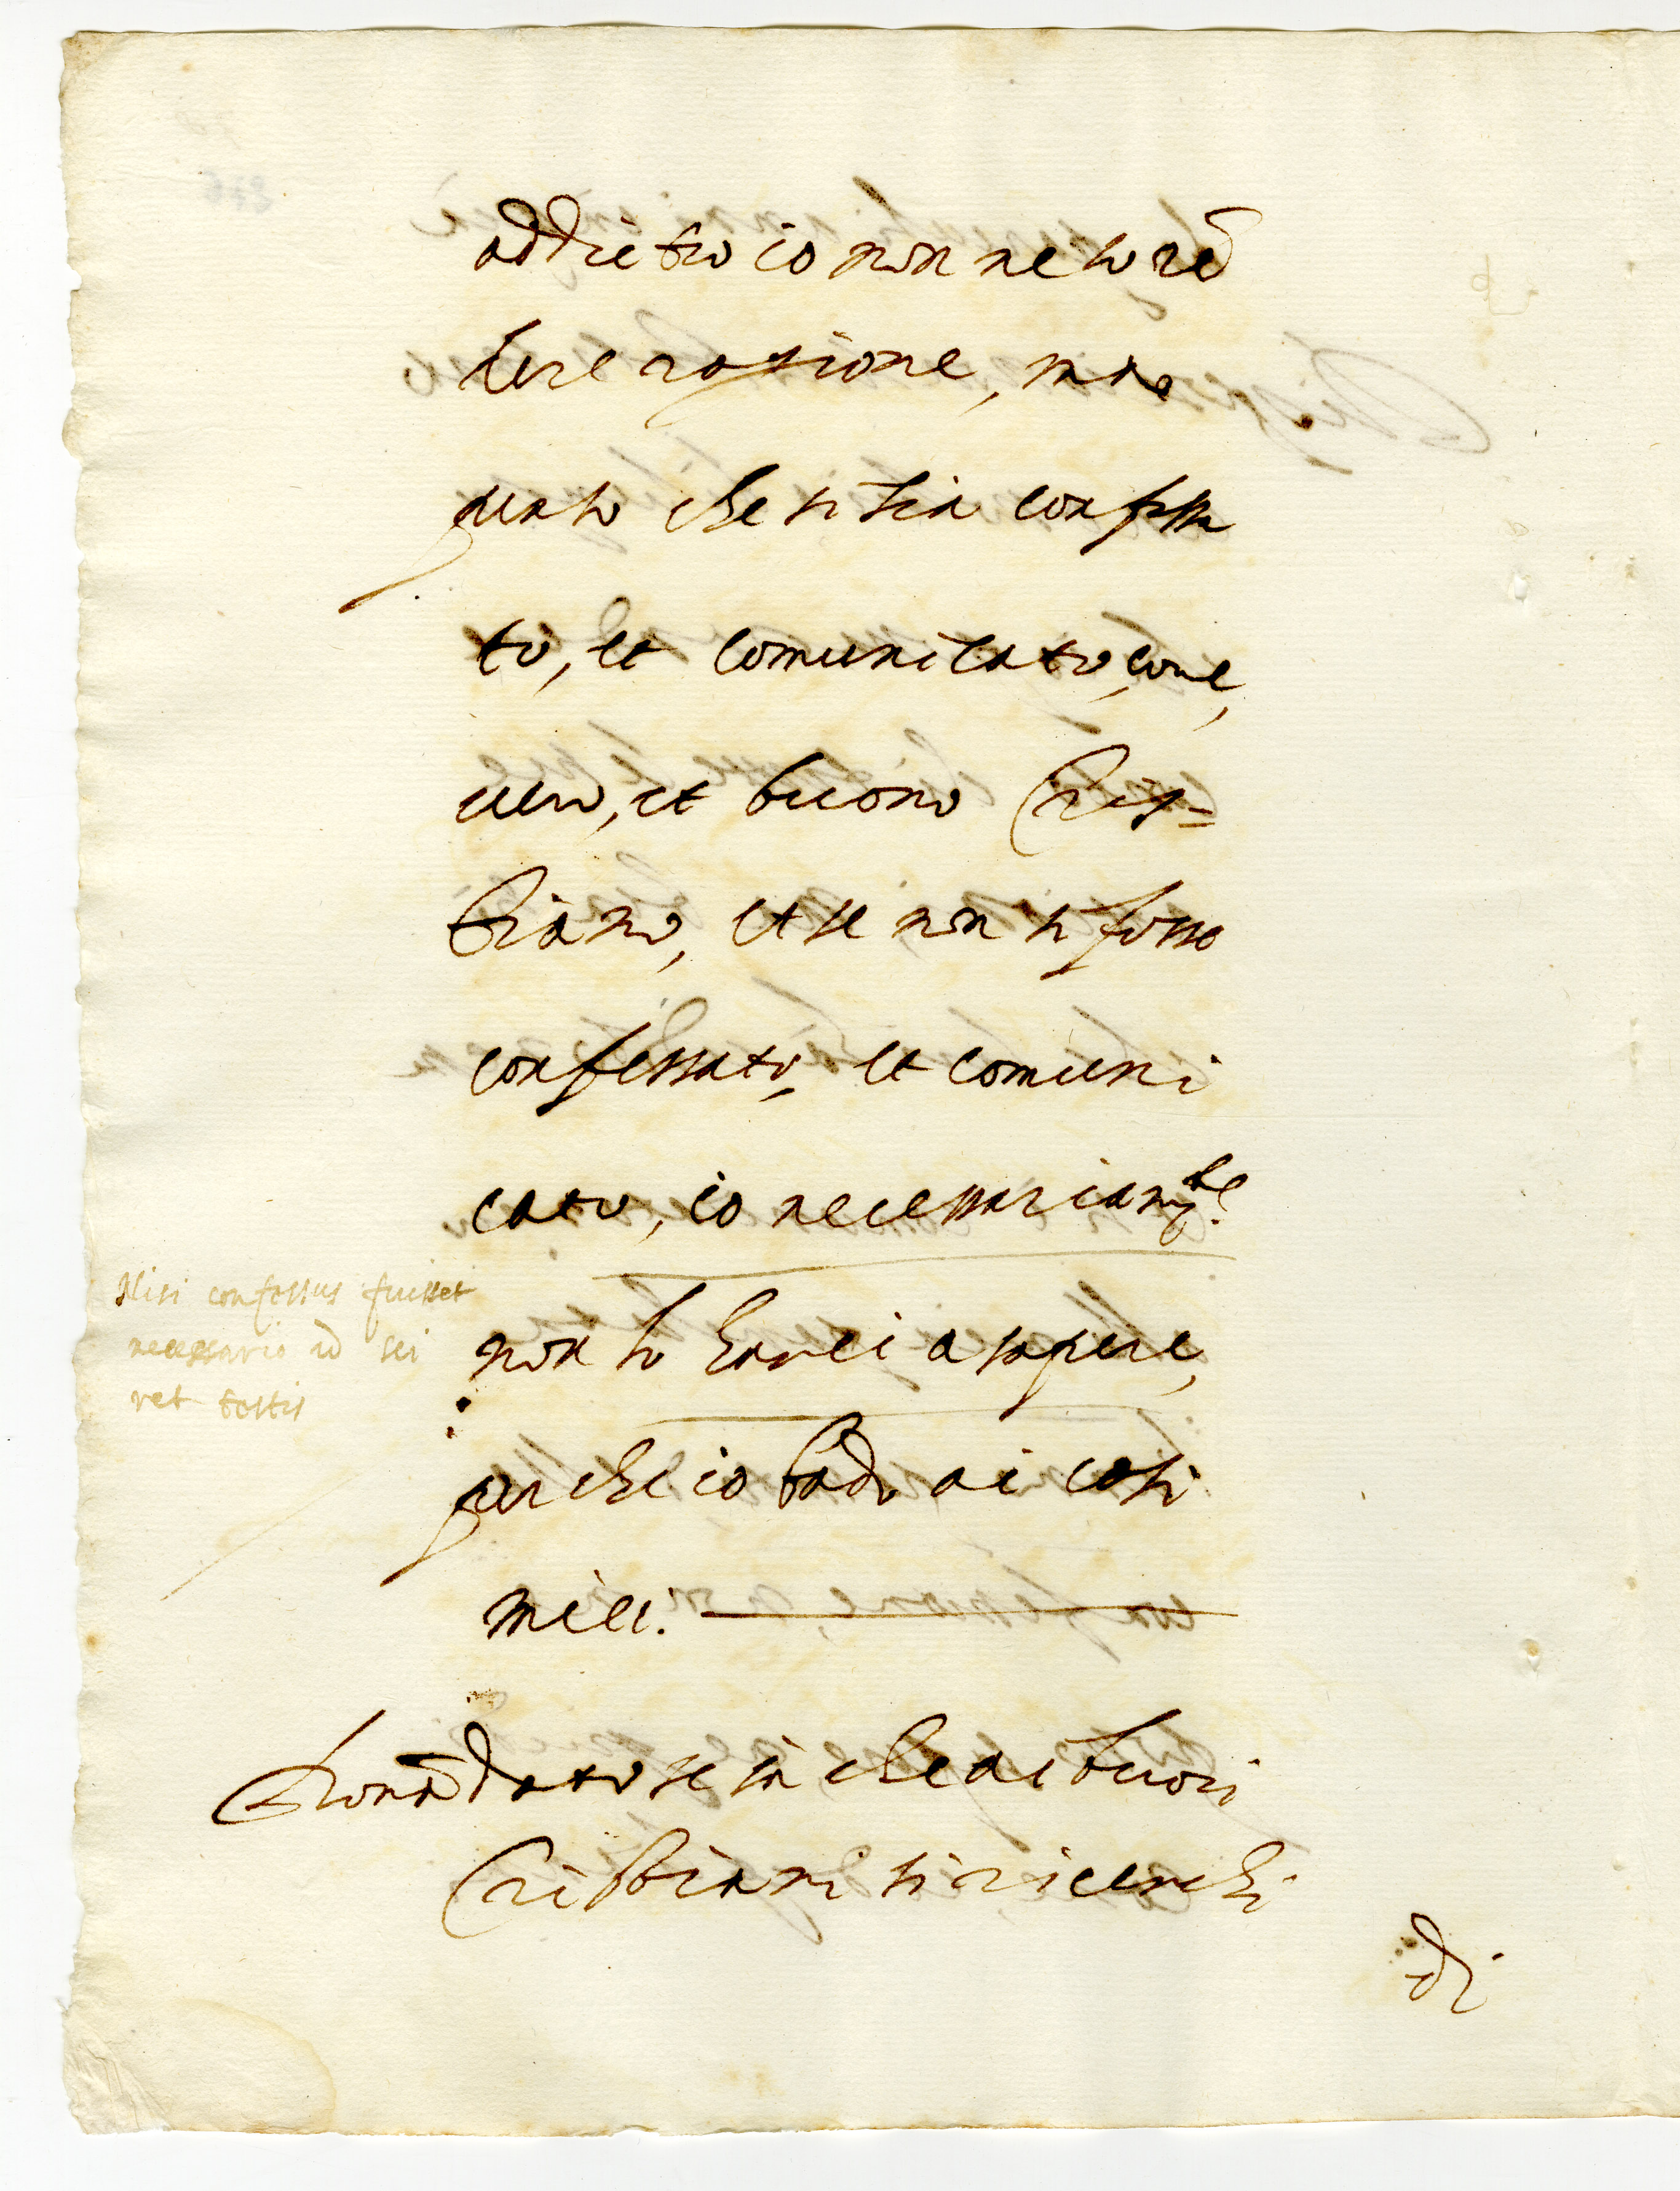 addietro io non ne so ren̄
dere ragione, ma
penso che si sia confessa
to, et comunicato, come,
vero, et buono Cris=
tiano, et se non si fosse
confessato, et comuni
cato, io necessariam.te
non lo havrei a sapere,
perche io bado ai casi
miei.
Nisi confessus fuisset
necessario id sci
ret testis
Domandato se sa che ai buoni
Cristiani si ricerchi
di